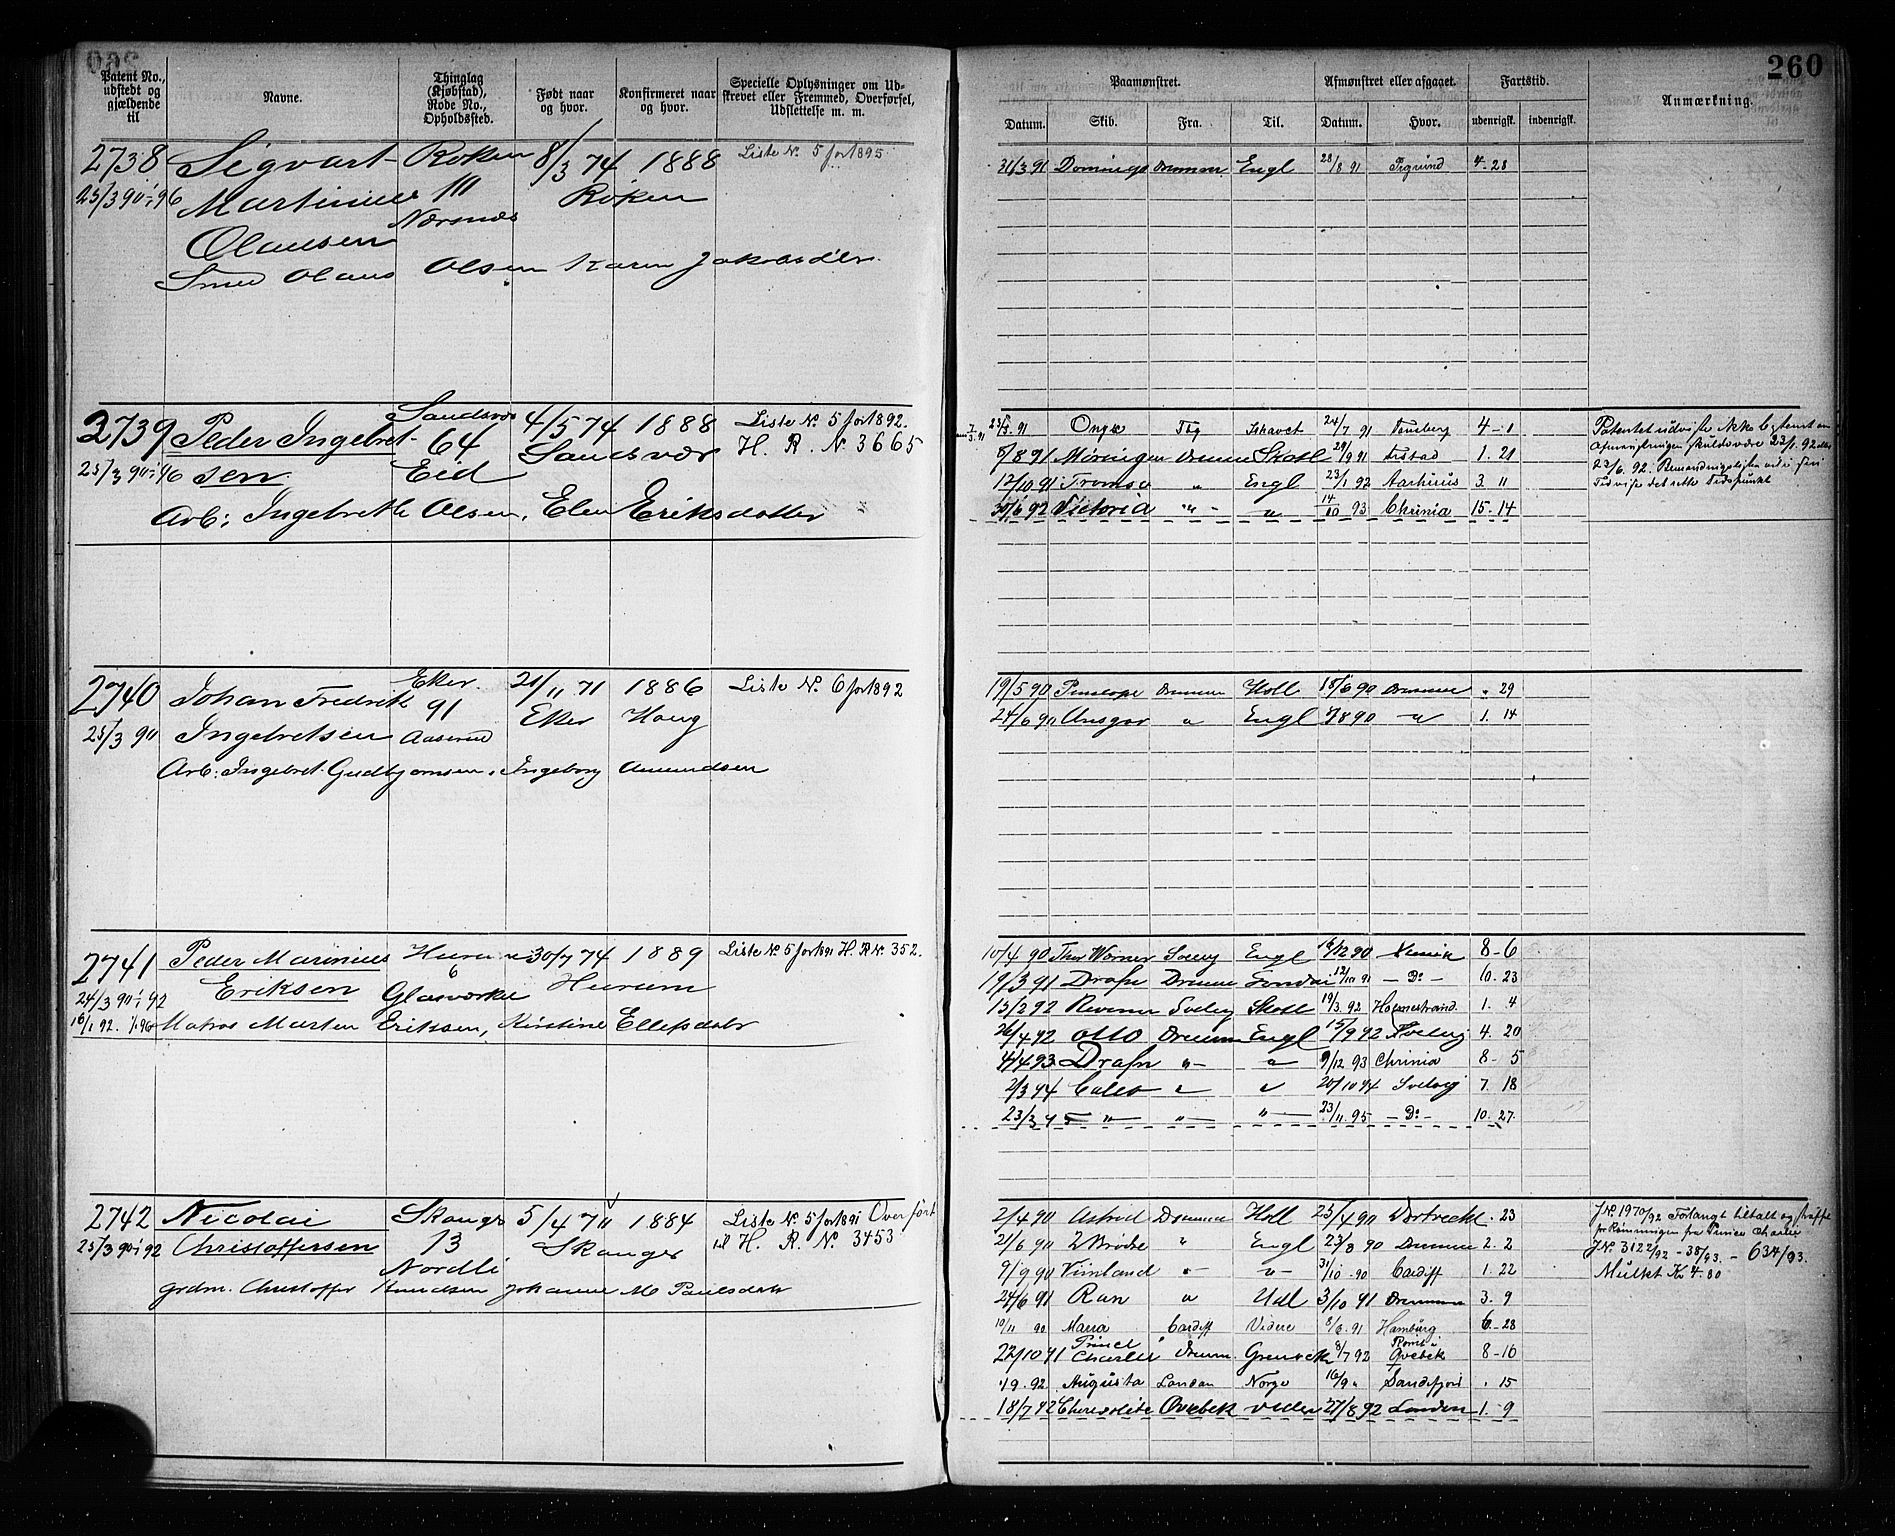 260
Patent No., udstedt og gjældende til
Navne.
Thinglag (Kjøbstad), Rode No., Opholdssted.
Født naar og hvor.
Konfirmeret naar og hvor.
Specielle Oplysninger om Udskrevet eller Fremmed, Overførsel, Udslettelse m. m.
Paamønstret.
Afmønstret eller afgaaet.
Fartstid.
Anmærkning.
Datum. Skib. Fra. Til. Datum. Hvor. udenrigsk. indenrigsk.
2738 Sigvart Røken 8/3 74 1888 Liste No. 5 for 1895
25/3 90 Martinius III Røken
Nærsnæs
Olausen
Smed Olaus Olsen Karen Jakobsd'tr.
31/3 91 Domingo Drammen Engl 28/8 91 4-28
2739 Peder Ingebret- Sandsvær 4/5 74 1888 Liste No. 5 for 1892.
sen 64 Sandsvær H. R. No. 3665
25/3 90 Eid
Arb: Ingebreth Olsen, Elen Eriksdatter
Tbg Ishavet 24/7 91 Tønsberg 4-1
5/8 91 Drammen Skotl 29/9 91 1.21
12/10 91 Tromsø " Engl 23/1 92 Aarhuus 3.11
30/6 92 Victoria " " 14/10 93 Chrinia 15-14
2740 Johan Fredrik Eker 21/11 71 1886 Liste No. 6 for 1892
91 Eker Haug
25/3 90 Ingebretsen Aaserud
Arb: Ingebret Gudbjørnsen, Ingeborg Amundsen
19/5 90 Penelope Drammen Holl 15/6 90 Drammen " 29
24/6 90 Ansgar " Engl 7/8 90 " 1.14
2741 Peder Marinius Hurum 30/7 74 1889 Liste No. 5 for 1891 H. R. No. 352.
Eriksen 6 Hurum
24/3 90 Glasværket
16/1 92. Matros Morten Eriksen, Kirstine Ellefsdatr
10/4 90 Svelvig Engl 8-6
19/3 91 Drafn Drammen London 12/10 91 - Do - 6.23
15/2 92 Svelvig Skotl 19/3 92 Holmestrand. 1.4
26/4 92 Otto Drammen Engl 15/9 92 Svelvig 4.20
4/4 93 Drafn " " 9/12 93 Chrinia 8-5
2/3 94 " " 20/10 94 Svelvig 7.18
23/3 95 " " " 23/11 95 - Do - 10.27
2742 Nicolai Skouger 5/4 70 1884 Liste No. 5 for 1891 Overført
25/3 90 Christoffersen 13 Skauger til H. R. No. 3453
Nordli
grdm. Christoffer Knudsen Johanne M. Paulsdatr
2/4 90 Astrid Drammen Holl 25/4 90 Dortrecht " 23
2/6 90 2 Brødre " Engl 23/8 90 Drammen 2.2
9/9 90 Vinland " " 31/10 90 Cardiff 1.22
24/6 91 Ran " Udl 3/10 91 Drammen 3.9
10/11 90 Maria Cardiff Videre 8/6 91 Hamburg 6-28
22/10 91 Prince Charlie Dramn. Greenock 8/7 92 Qvebek 8-16
Augusta London Norge Sandefjord " 15
18/7 92 Qvebek Videre 27/8 92 London 1.-9
J No. 1970/92 Forlangt tiltalt og straffet
for Rømningen fra Prince Charlie
J No. 3122/92 - 38/93. - 634/93.
Mulkt Kr 4.00